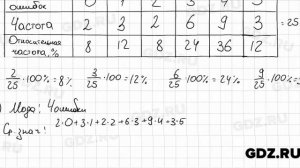 ошибок 0 1 2 3 4 5
Частота 2 3 2 6 9 3 = 25
Относительная частота, % 8 12 8 24 36 12
2/25 · 100% = 8% 3/25 · 100 = 12% 6/25 · 100% = 24% 9/25
) Мода: 4 ошибки
Ср. знач: 2·0+3·1+2·2+6·3+9·4+3·5
GDZ.RU
GDZ.RU